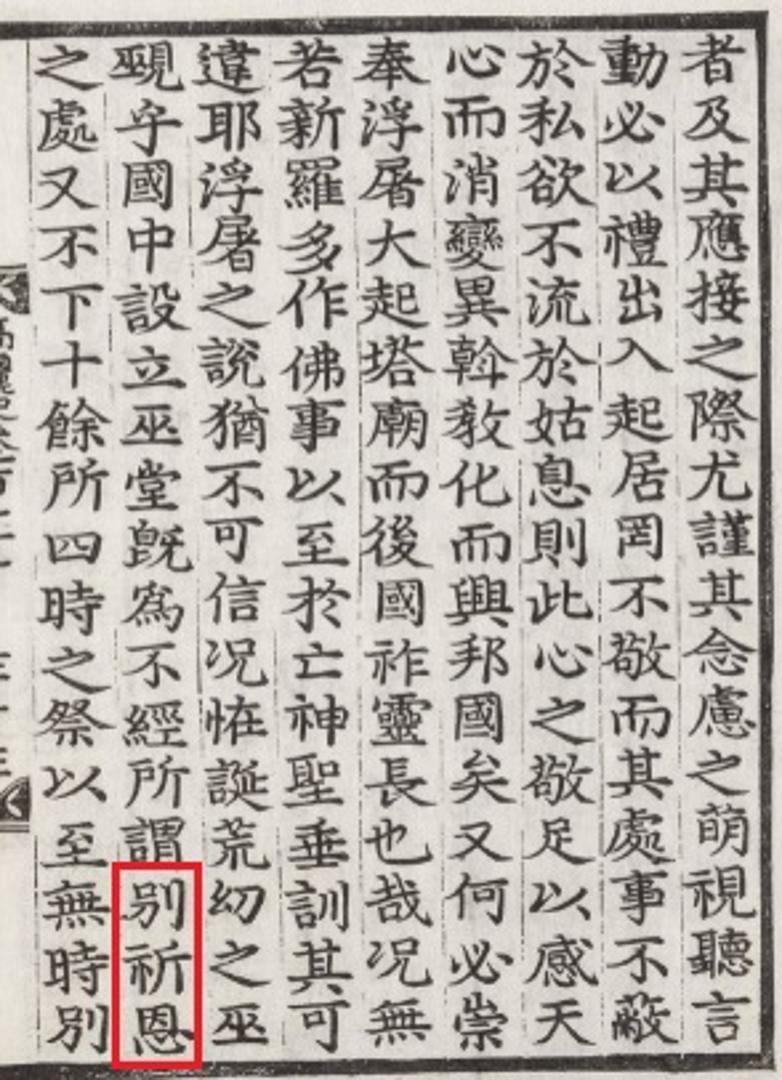 者及其應接之際尤謹其念慮之萌視聽言
動必以禮出入起居罔不敬而其處事不蔽
於私欲不流於姑息則此心之敬足以感天
心而消變異斡教化而興邦國矣又何必崇
奉浮屠大起塔廟而後國祚靈長也哉况無
若新羅多作佛事以至於亡神聖垂訓其可
違耶浮屠之說猶不可信况恠誕荒幻之巫
覡乎國中設立巫堂旣爲不經所謂別祈恩
之處又不下十餘所四時之祭以至無時別